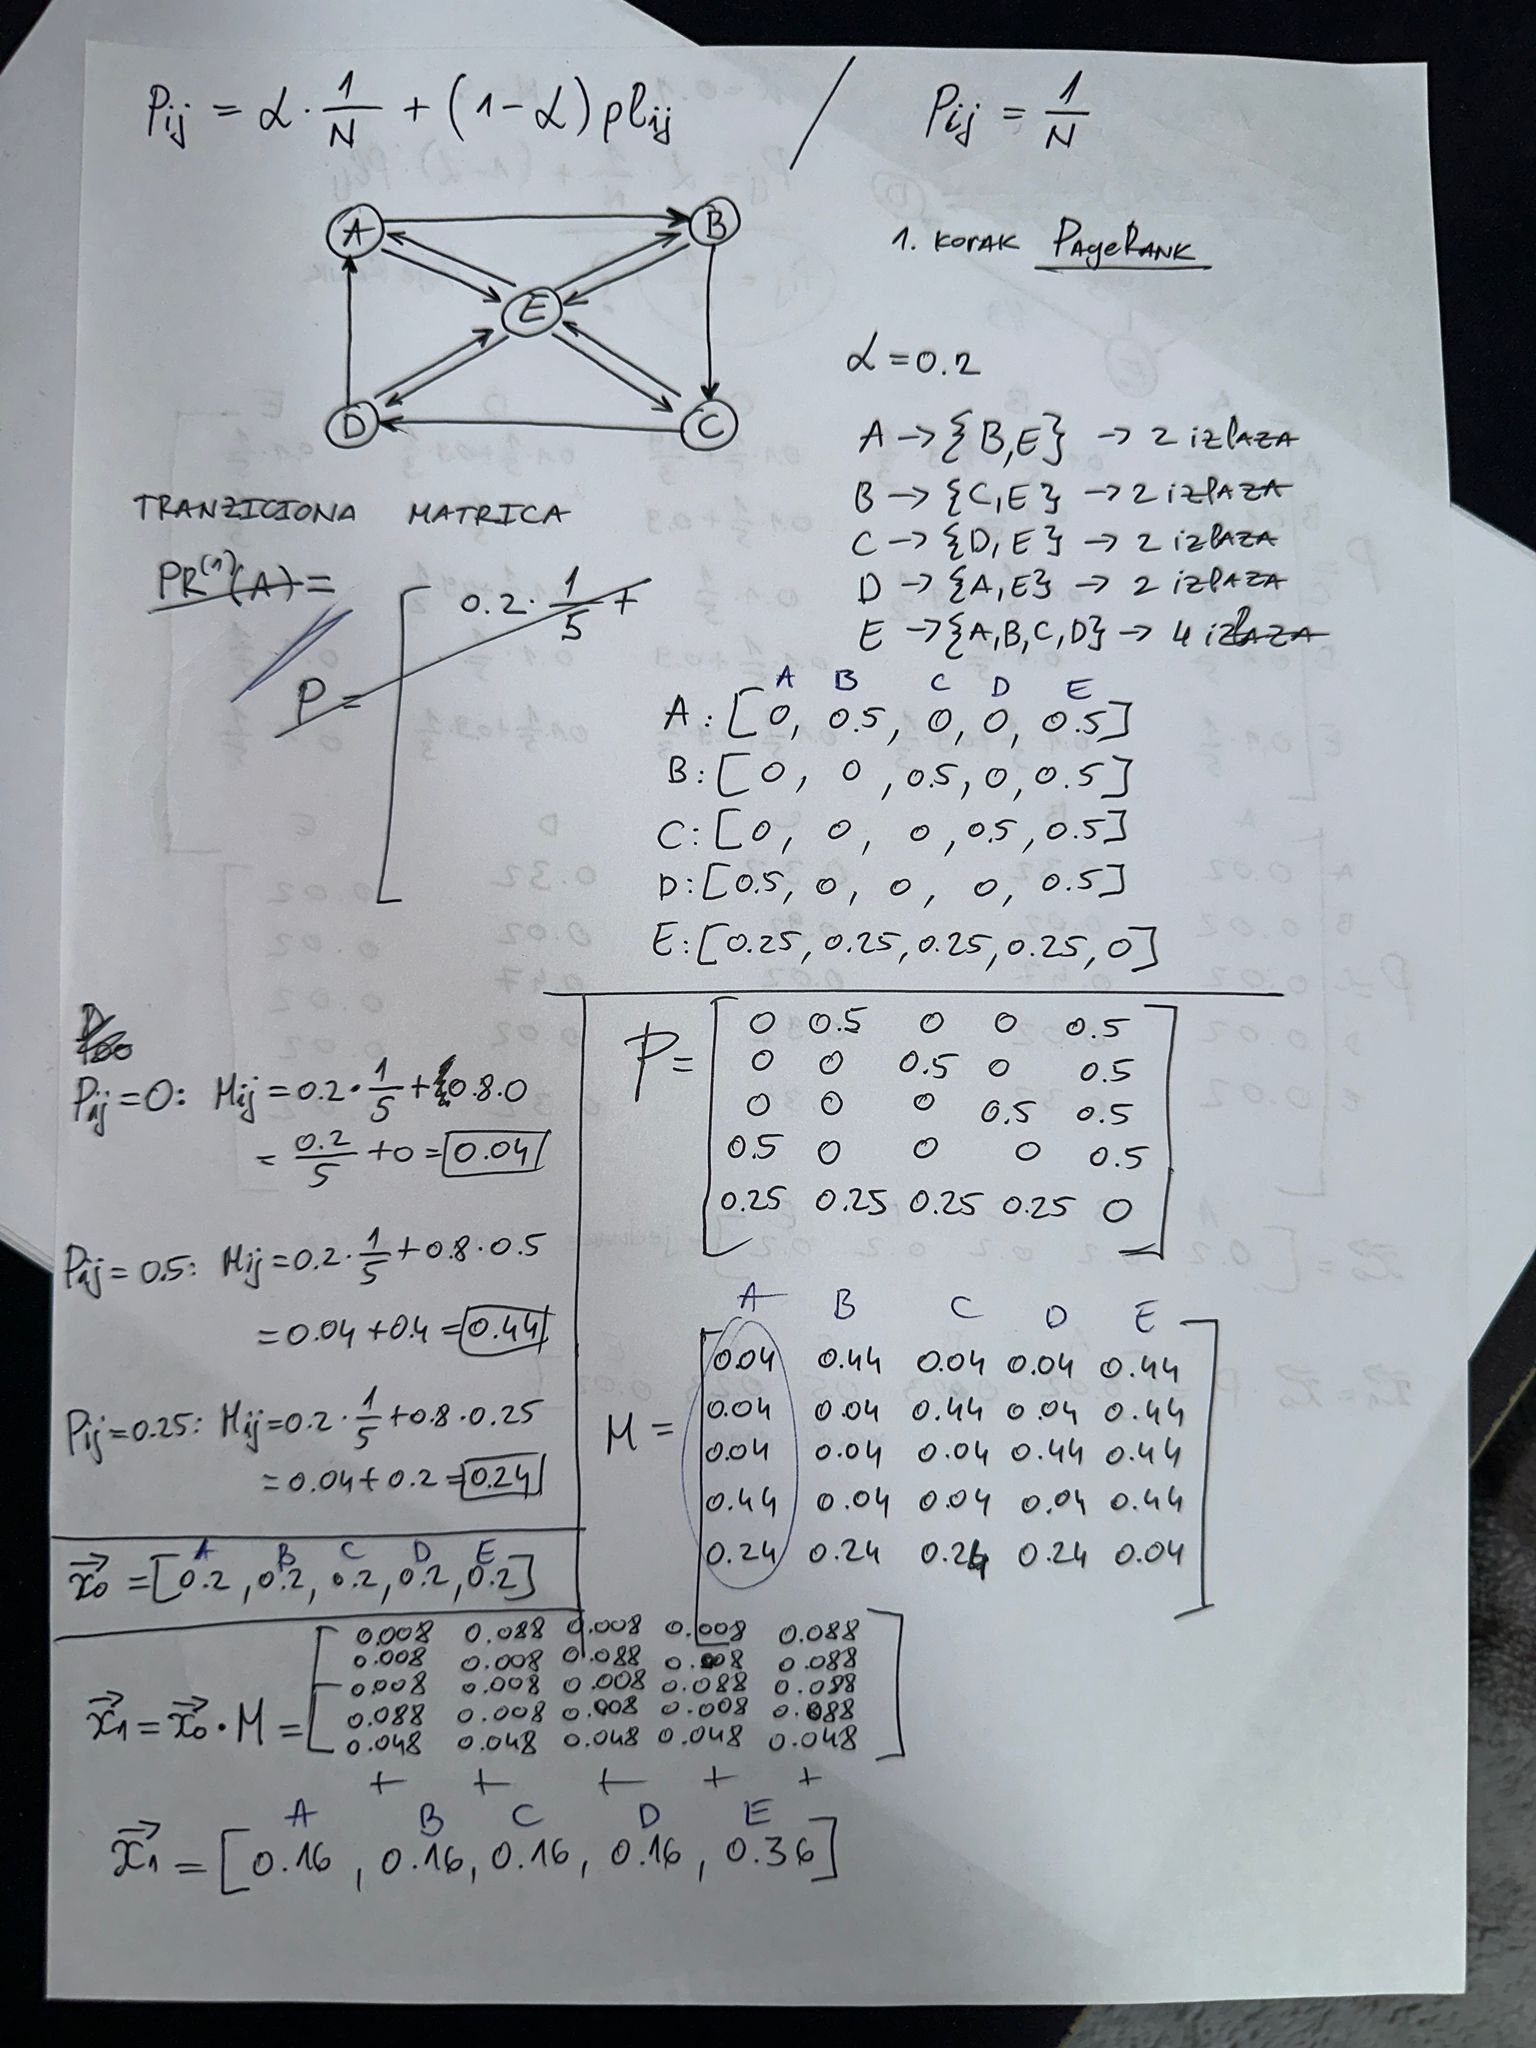 Pij = α · 1/N + (1-α) plij / Pij = 1/N
A B
E
D C
1. KORAK PAgeRANK
α = 0.2
A → {B,E} → 2 izlaza
B → {C,E} → 2 izlaza
C → {D,E} → 2 izlaza
D → {A,E} → 2 izlaza
E → {A,B,C,D} → 4 izlaza
TRANZICIONA MATRICA
PR⁽¹⁾(A) =
P = [ 0.2 · 1/5 +
A B C D E
A: [0, 0.5, 0, 0, 0.5]
B: [0, 0, 0.5, 0, 0.5]
C: [0, 0, 0, 0.5, 0.5]
D: [0.5, 0, 0, 0, 0.5]
E: [0.25, 0.25, 0.25, 0.25, 0]
Pij = 0: Mij = 0.2 · 1/5 + 0.8 · 0
= 0.2/5 + 0 = 0.04
Pij = 0.5: Mij = 0.2 · 1/5 + 0.8 · 0.5
= 0.04 + 0.4 = 0.44
Pij = 0.25: Mij = 0.2 · 1/5 + 0.8 · 0.25
= 0.04 + 0.2 = 0.24
P =
0 0.5 0 0 0.5
0 0 0.5 0 0.5
0 0 0 0.5 0.5
0.5 0 0 0 0.5
0.25 0.25 0.25 0.25 0
A B C D E
M =
0.04 0.44 0.04 0.04 0.44
0.04 0.04 0.44 0.04 0.44
0.04 0.04 0.04 0.44 0.44
0.44 0.04 0.04 0.04 0.44
0.24 0.24 0.24 0.24 0.04
A B C D E
x₀ = [0.2, 0.2, 0.2, 0.2, 0.2]
x₁ = x₀ · M =
0.008 0.088 0.008 0.008 0.088
0.008 0.008 0.088 0.008 0.088
0.008 0.008 0.008 0.088 0.088
0.088 0.008 0.008 0.008 0.088
0.048 0.048 0.048 0.048 0.048
+ + + + +
A B C D E
x₁ = [0.16, 0.16, 0.16, 0.16, 0.36]